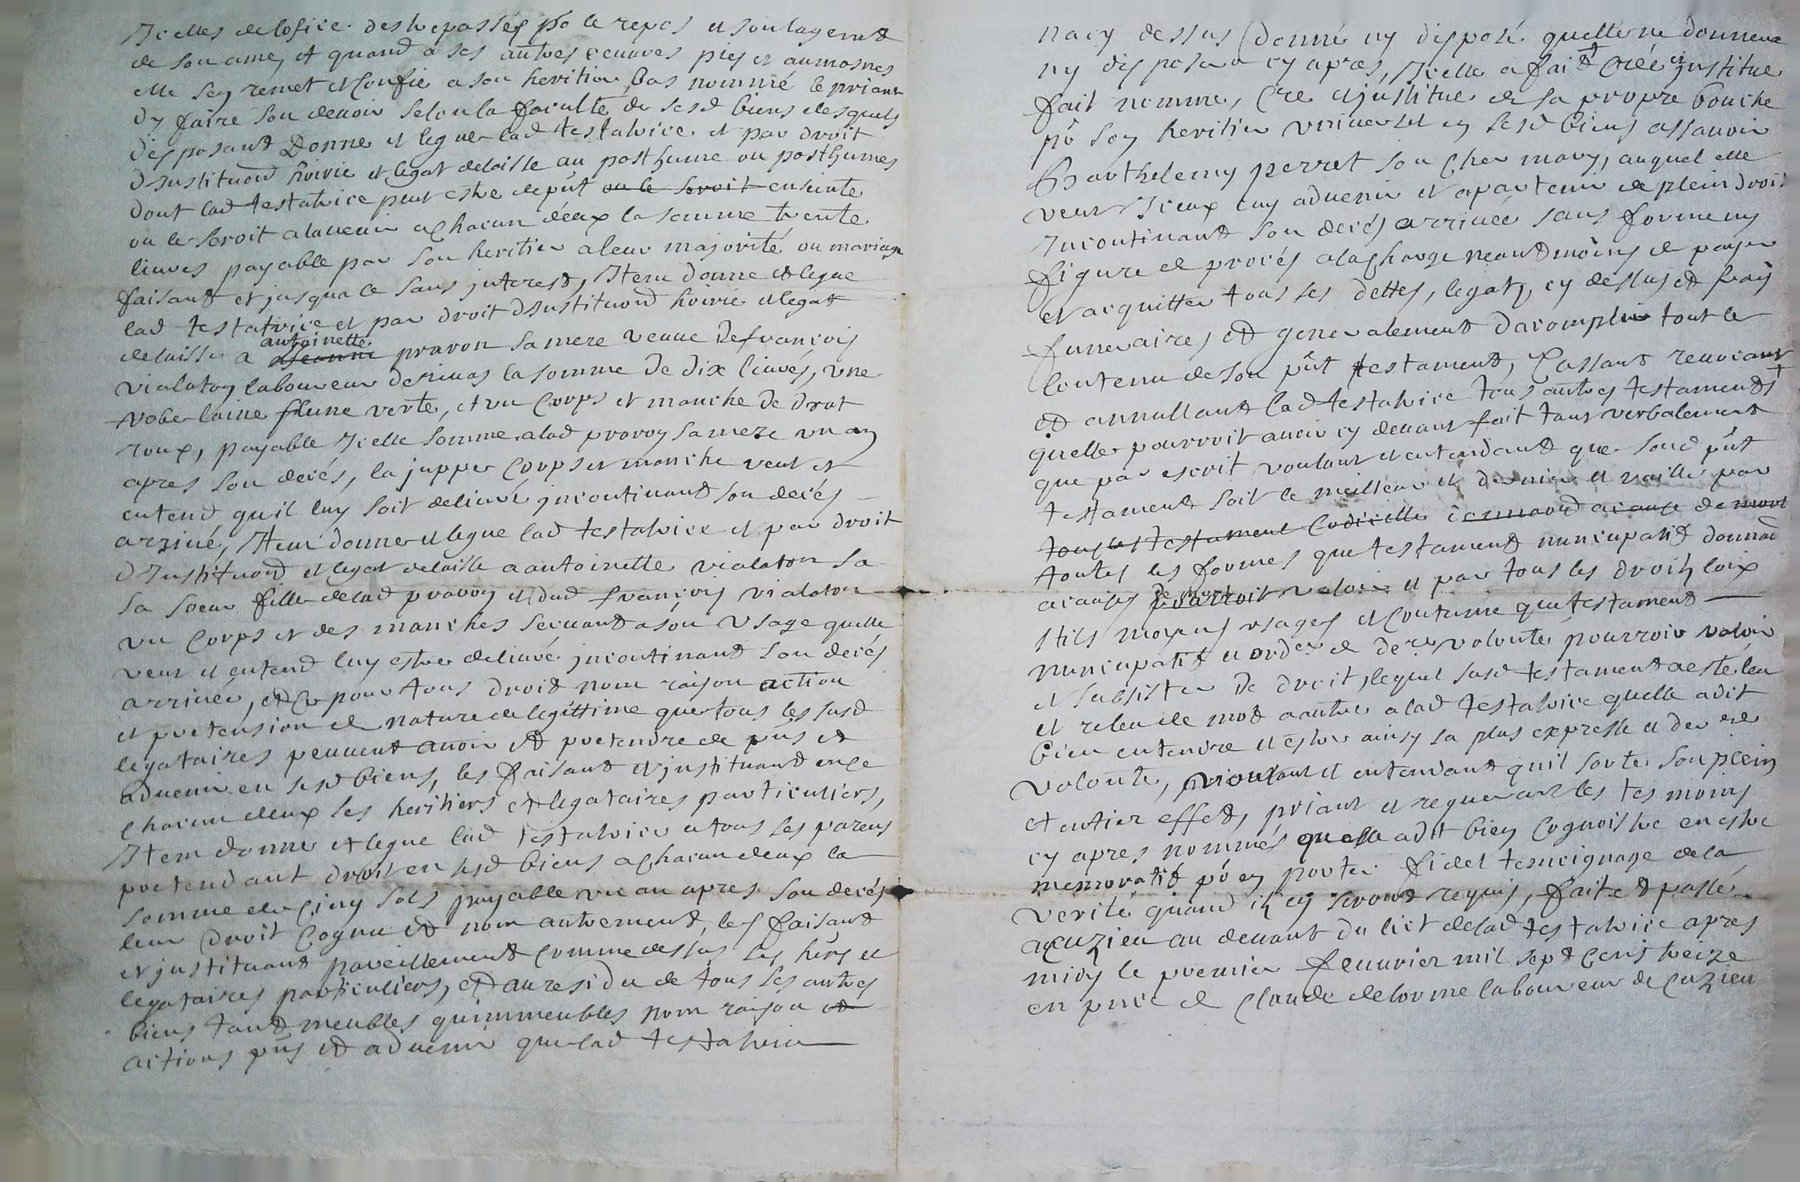 Icelles de lofice des trepassés po le repos et soulagemt
de son ame, et quand a ses autres œuvres pies et aumosnes
elle sen remet et confie a son heritier bas nommé le priant
dy faire son devoir selon la faculté de sesd biens desquels
disposant Donne et legue lad testatrice et par droit
dinstitutiond hoirie et legat delaisse au posthume ou posthumes
dont lad testatrice peut estre de pnt ou le seroit enseinte
ou le seroit aladvenir a chacun deux la somme trente
livres payable par son heritier a leur majorité ou mariage
faisant et jusqua ce sans interest, Item donne et legue
lad testatrice et par droit dinstitutiond hoirie et legat
delaisse a Jeanne antoinette pravon sa mere veuve de françois
vialaton laboureur de rivas la somme de dix livres, une
robe laine flune verte, et un corps et manche de drat
roux, payable Icelle somme a lad pravon sa mere un an
apres son decés, la juppe corps et manche veut et
entend quil luy soit delivré incontinant son decés
arrivé, Item donne et legue lad testatrice et par droit
dInstitutiond et legat delaisse a antoinette vialaton sa
sa soeur fille de lad pravon et dud françois vialaton
un corps et des manches servant a son usage quelle
veut et entend luy estre delivré incontinant son decés
arrivée, et ce pour tous droit nom raison action
et pretension de nature de legittime que tous les susd
legataires peuvent avoir et pretendre de pnt et
advenir en sesd biens, les faisant et instituant en ce
chacun deux ses heritiers et legataires particuliers,
Item donne et legue lad testatrice a tous ses parens
pretendant droit en sesd biens a chacun deux la
somme de cinq sols payable un an apres son decés
leur droit cognu et nom autrement, les faisant
et instituant pareillement comme dessus ses hers et
legataires particuliers, et au residu de tous ses autres
biens tant meubles quimmeubles nom raison et
actions pnt et advenir que lad testatrice
na cy dessus donné ny disposé quelle ne donnera
ny disposera cy apres, Icelle a fait créé et institué
fait nomme, cre et institue de sa propre bouche
po son heritier universel en sesd biens assavoir
Barthelemy perret son cher mary, auquel elle
veut Iceux luy advenir et apartenir de plein droit
Incontinant son decés arrivée sans forme ny
figure de procés a la charge neantmoins de payer
et acquitter tous ses dettes, legatz, cy dessus et frais
funeraires, et generalement dacomplir tout le
contenu de son pnt testament, Cassant revocant
et annullant lad testatrice tous autres testaments
quelle pourroit avoir cy devant fait tant verbalement
que par escrit voulant et entendant que sond pnt
testament soit le meilleur et dernier et vaille par
tous testament codicille donnaond a cause de mort
toutes les formes que testament nuncupatif donnaon
a causes de mort pourroit valoir et par tous les droits loix
stils moyens usages et coutume que testament
nuncupatif et ordre de dere volonté pourroit valoir
et subsister de droit, lequel susd testament a esté leu
et releu de mot a autre a lad testatrice quelle a dit
bien entendre et estre ainsy sa plus expresse et derere
volonte, voulant et entendant quil sorte son plein
et entier effet, priant et requerant les tesmoins
cy apres nommés quelle a dit bien cognoistre en estre
memoratif po en porter fidel temoignage de la
verité quand ils en seront requis, fait et passé
a cuzieu au devant du lict de lad testatrice apres
midy le premier feuvrier mil sept cens treize
en pnce de Claude delorme laboureur de cuzieu